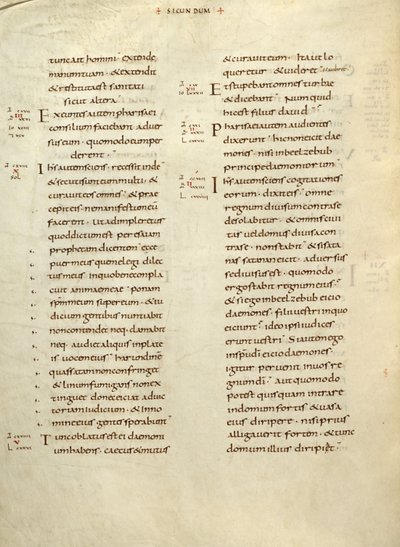 + SECUNDUM +
tunc ait homini extende
manum tuam · & extendit
& restituta est sanitati
sicut altera
Exeuntes autem pharisaei
consilium faciebant adver
sus eum · quomodo eum per
derent ·
Ihs autem sciens · recessit inde
& secuti sunt eum multi · &
curavit eos omnes · & prae
cepit eis · ne manifestum eū
facerent · Ut adimpleretur
quod dictum est per esaiam
prophetam dicentem · ecce
puer meus quem elegi · dilec
tus meus in quo bene compla
cuit animae meae · ponam
spm meum super eum · & iu
dicium gentibus nuntiabit
non contendet neq · clamabit
neq · audiet aliquis in plate
is vocem eius · harundinem
quassatam non confringet
& linum fumigans non ex
tinguet donec eiciat ad vic
toriam iudicium · & in no
mine eius gentes sperabunt
Tunc oblatus est ei daemoni
um habens · caecus & mutus
& curavit eum · Ita ut lo
queretur & videret
Et stupebant omnes turbae
& dicebant · Numquid
hic est filius david ·
Pharisaei autem audientes
dixerunt · hic non eicit dae
mones · nisi in beelzebub
principe daemoniorum ·
Ihs autem sciens cogitationes
eorum · dixit eis · omne
regnum divisum contra se
desolabitur · & omnis civi
tas vel domus divisa con
tra se · non stabit · & si sata
nas satanan eicit · adversus
se divisus est · quomodo
ergo stabit regnum eius
& si ego in beelzebub eicio
daemones · filii vestri in quo
eiciunt · ideo ipsi iudices
erunt vestri · Si autem ego
in spu di eicio daemones ·
igitur pervenit in vos re
gnum di · Aut quomodo
potest quisquam intrare
in domum fortis · & vasa
eius diripere · nisi prius
alligaverit fortem · & tunc
domum illius diripiet ·